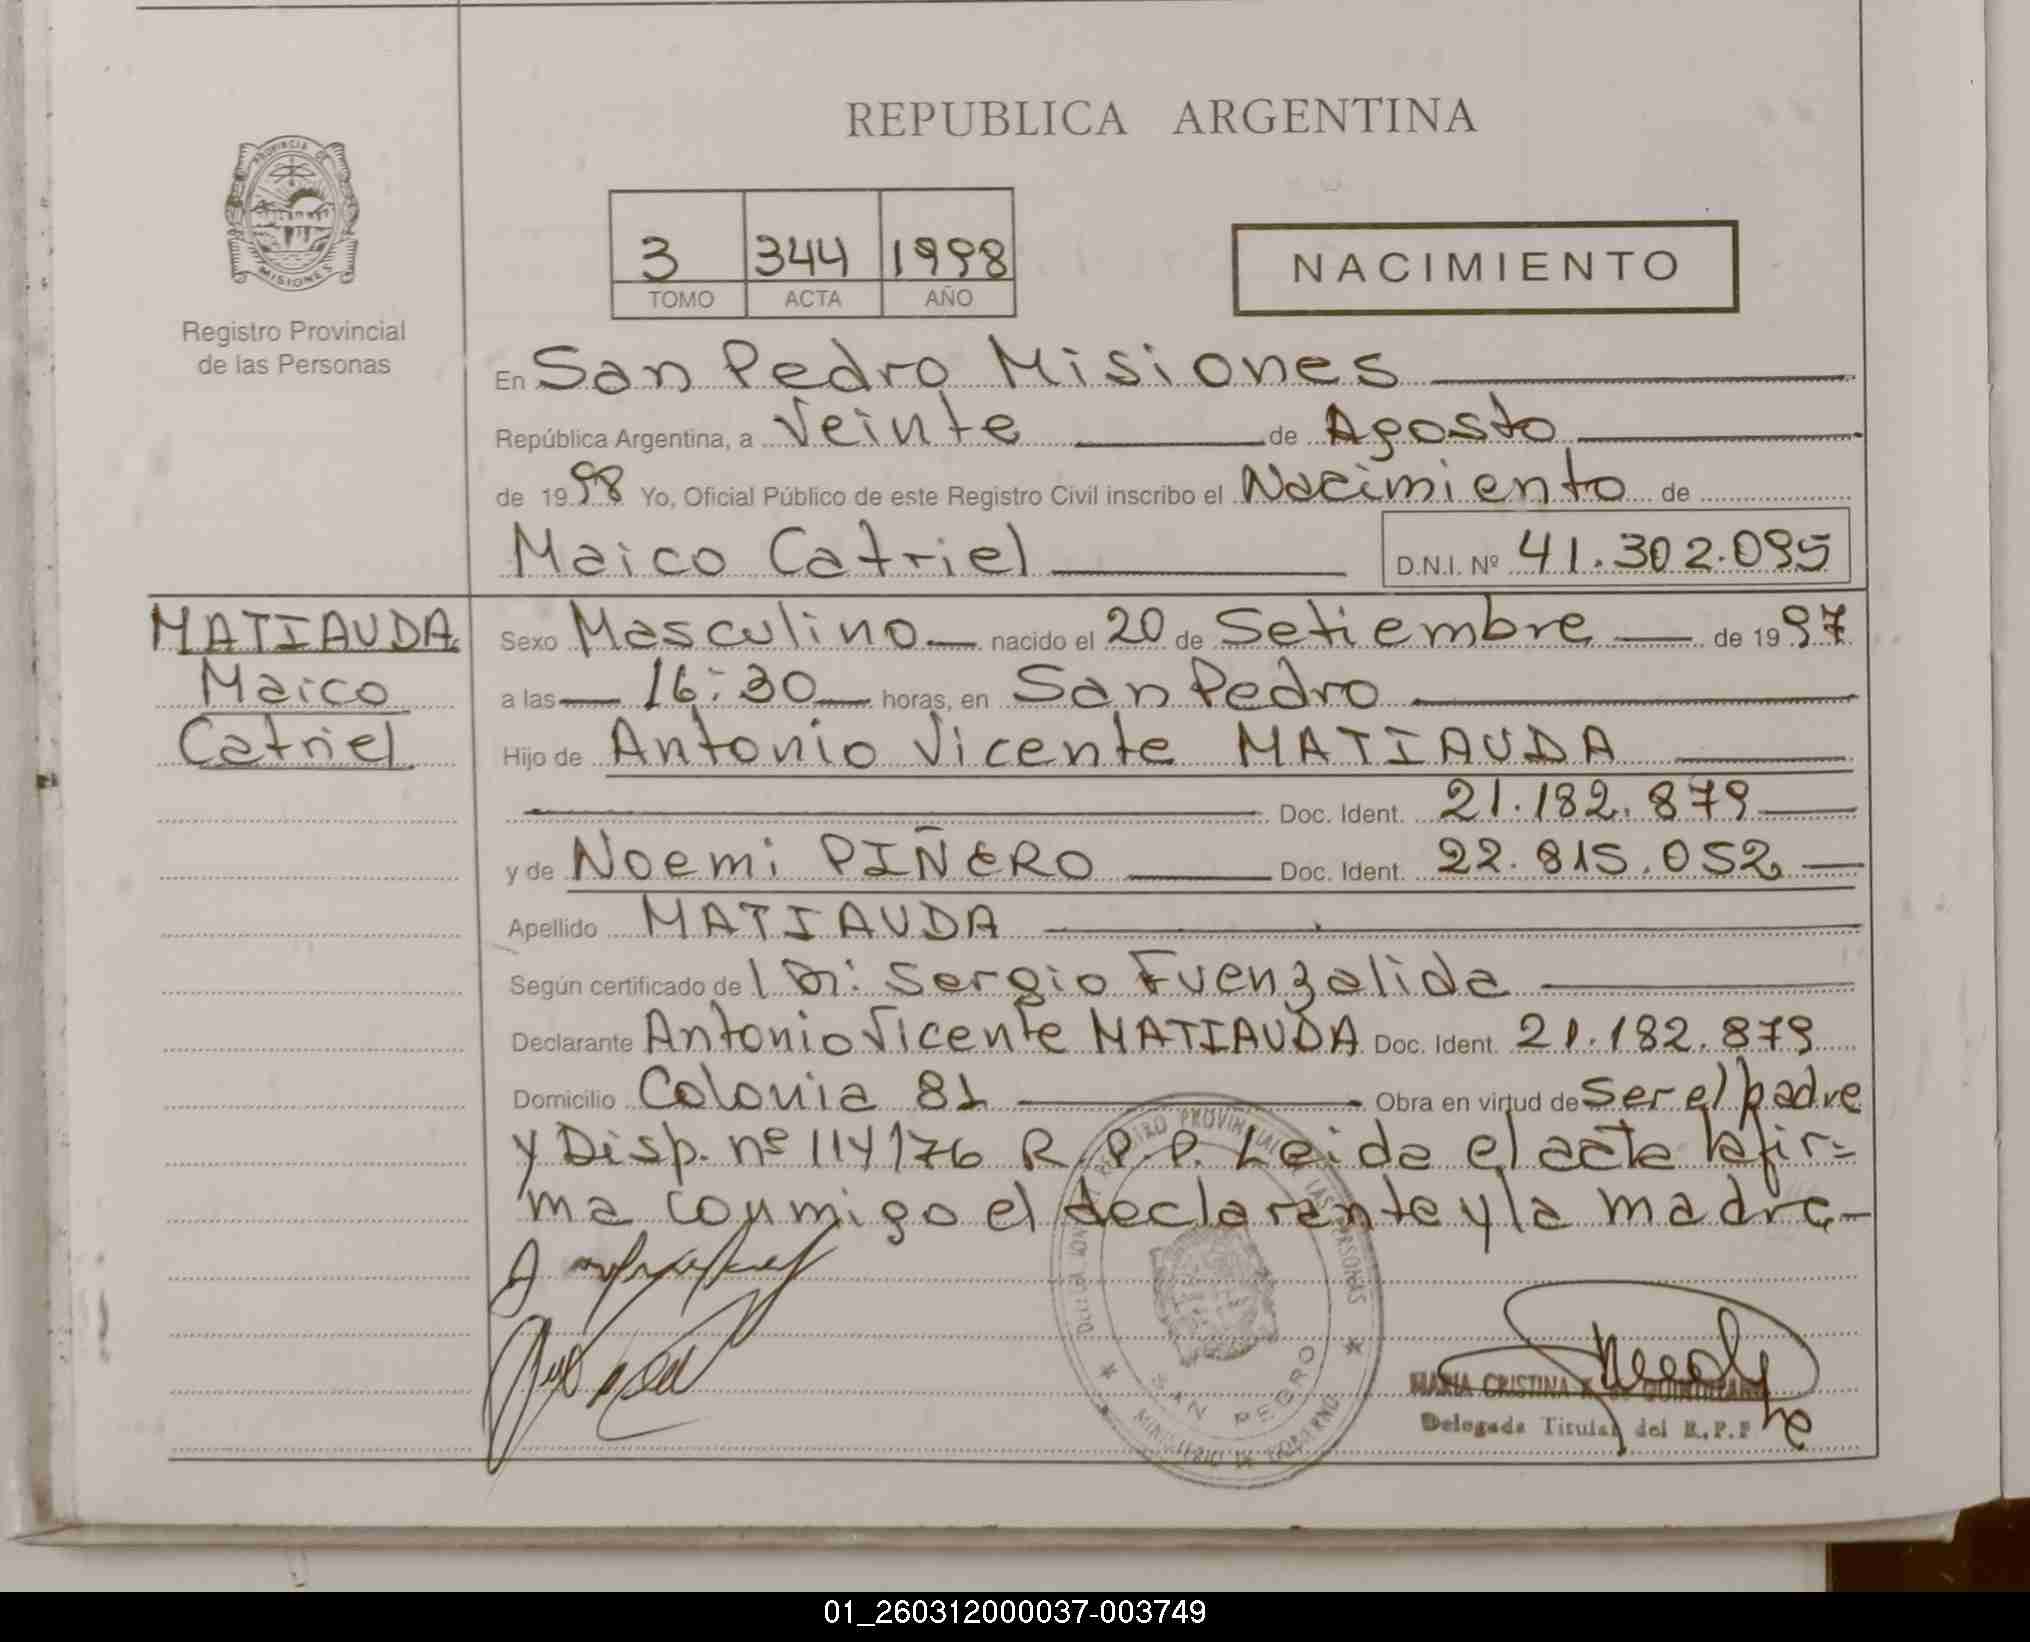 REPUBLICA ARGENTINA
PROVINCIA DE MISIONES
Registro Provincial
de las Personas
3 344 1998
TOMO ACTA AÑO
NACIMIENTO
En San Pedro Misiones
República Argentina, a Veinte de Agosto
de 1998 Yo, Oficial Público de este Registro Civil inscribo el Nacimiento de
Maico Catriel D.N.I. Nº 41.302.095
MATIAUDA
Maico
Catriel
Sexo Masculino nacido el 20 de Setiembre de 1997
a las 16:30 horas, en San Pedro
Hijo de Antonio Vicente MATIAUDA
Doc. Ident. 21.182.879
y de Noemi PIÑERO Doc. Ident. 22.815.052
Apellido MATIAUDA
Según certificado del Dr: Sergio Fuenzalida
Declarante Antonio Vicente MATIAUDA Doc. Ident. 21.182.879
Domicilio Colonia 81 Obra en virtud de ser el padre
y Disp. nº 114/76 R.P.P. Leida el acta la fir=
ma conmigo el declarante y la madre
REGISTRO PROVINCIAL DE LAS PERSONAS
SAN PEDRO
MINISTERIO DE GOBIERNO
MARIA CRISTINA
Delegada Titular del R.P.P
01_260312000037-003749